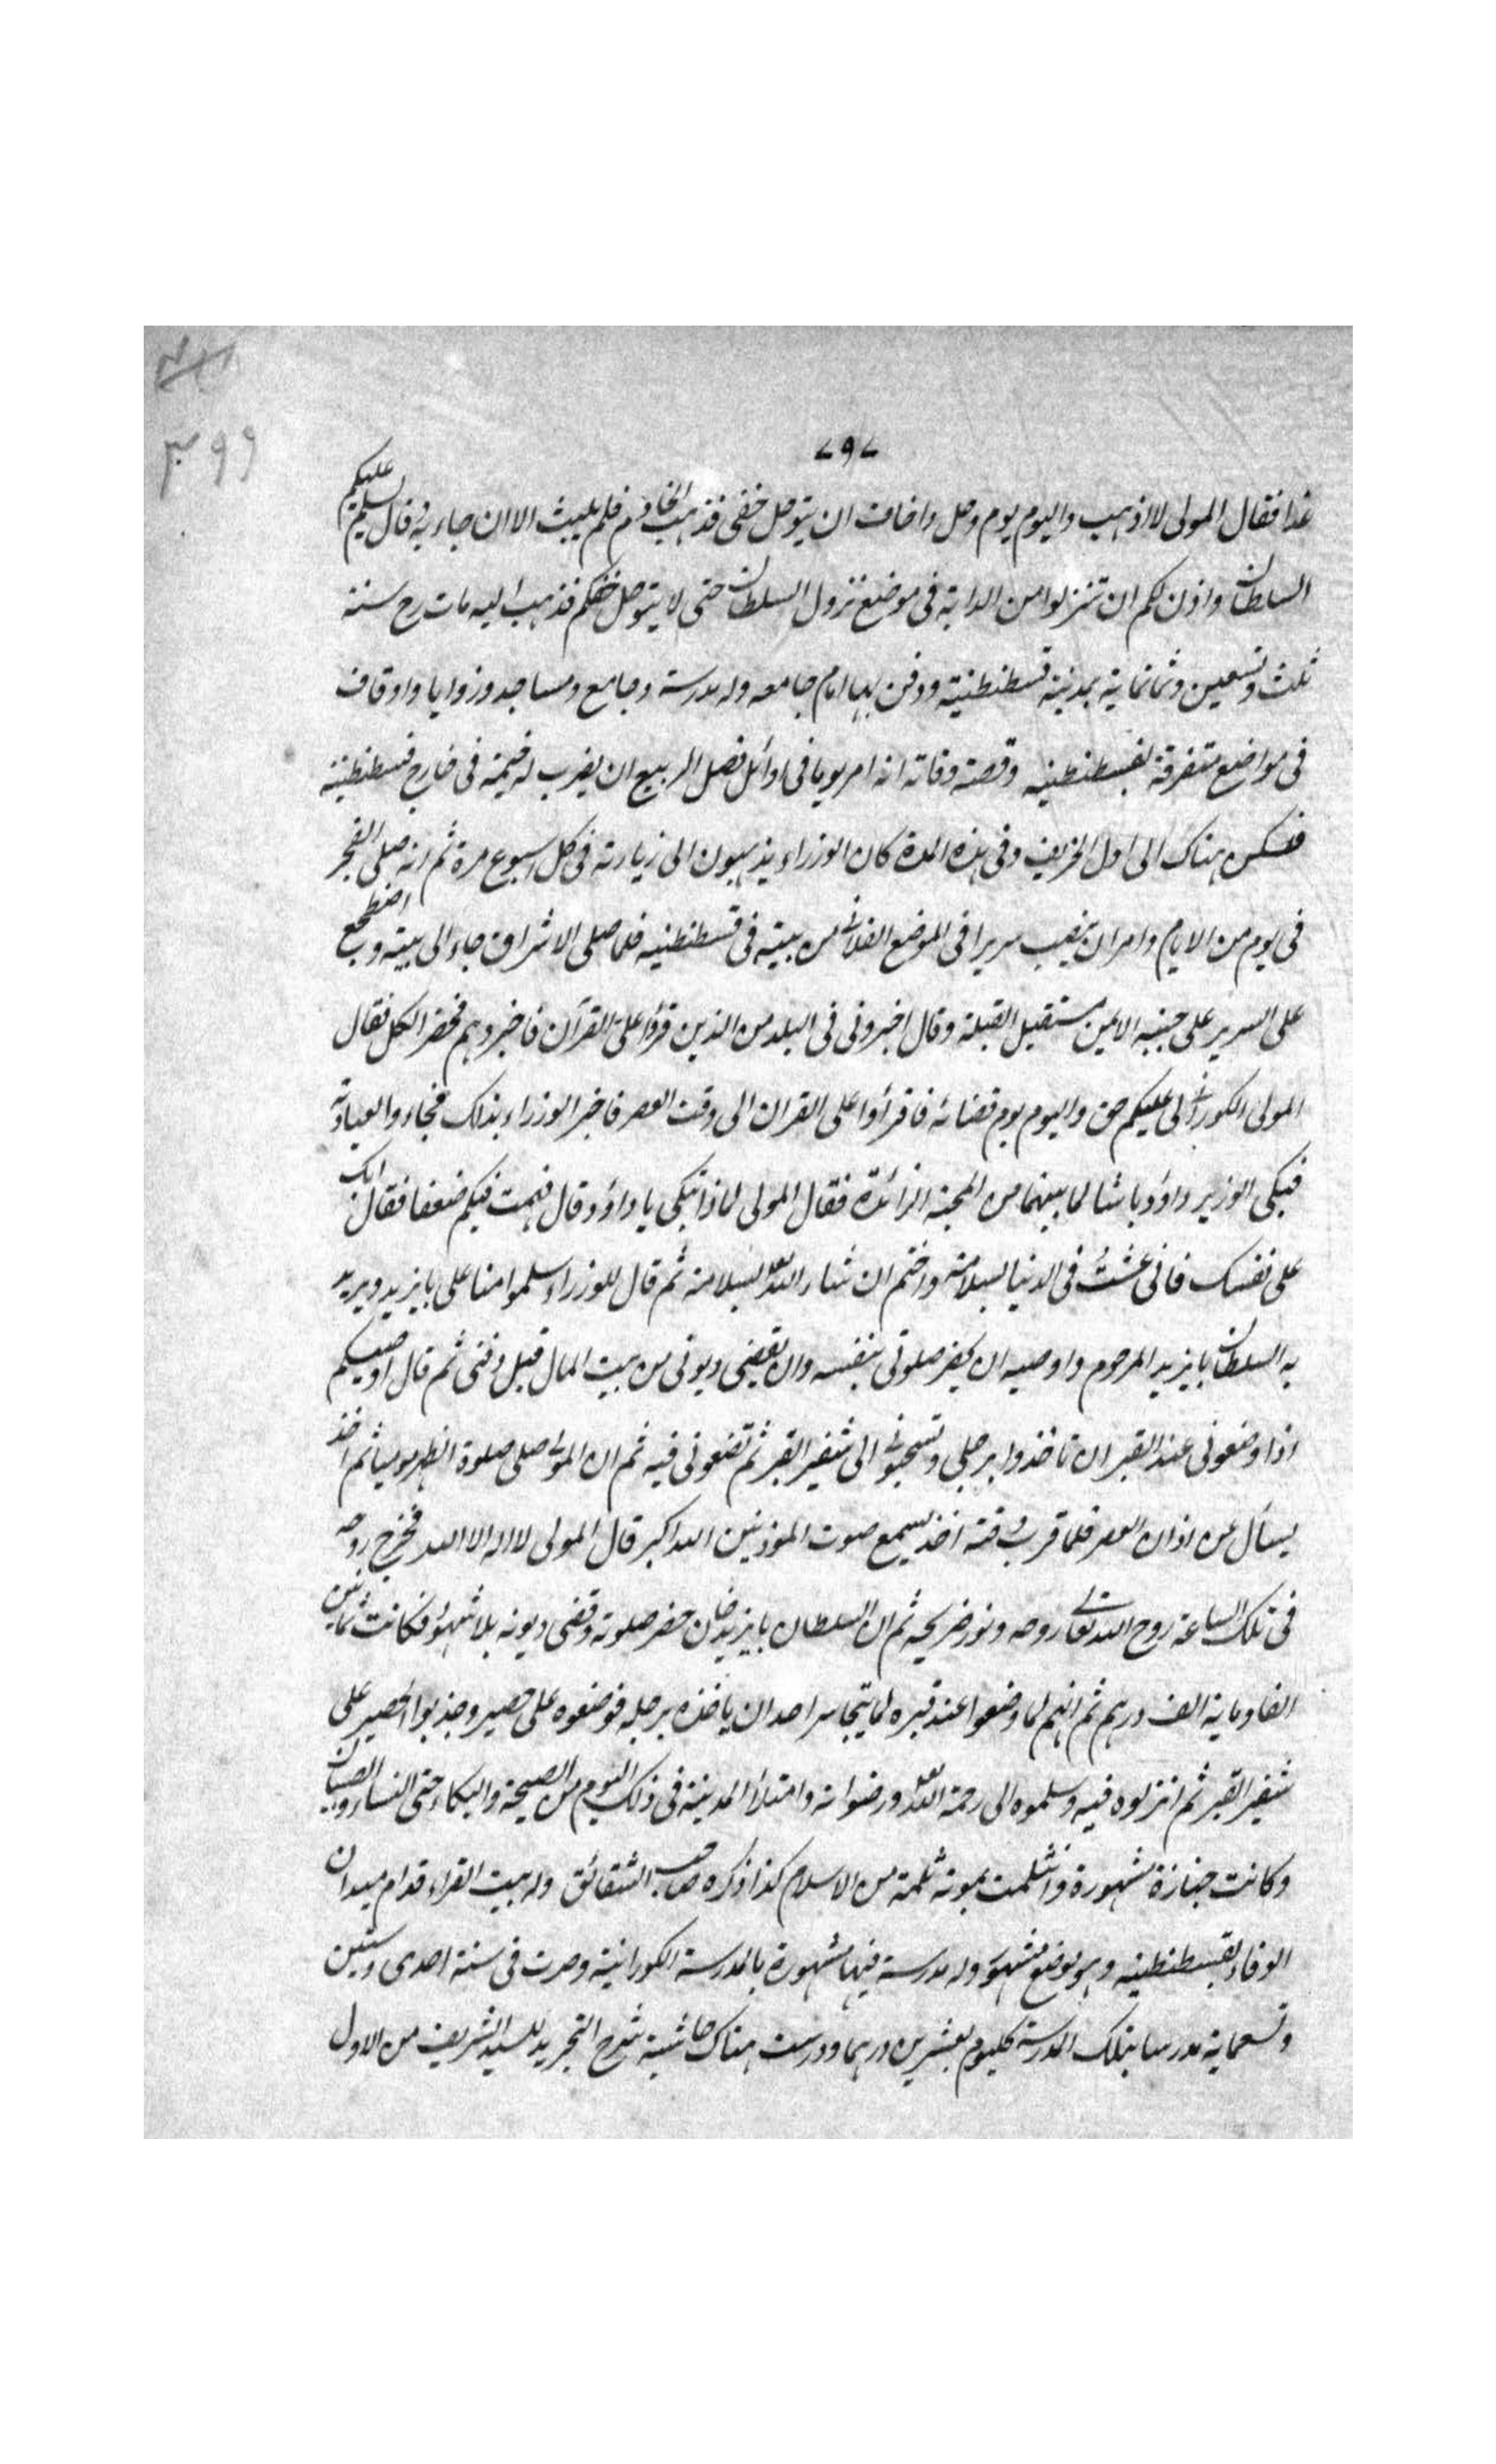 ٧٩٧
٣٩٩
غدا فقال المولى لا اذهب واليوم يوم وحل واخاف ان يتوحل خفى فذهب الخادم فلم يلبث الا ان جاء به قال يسلم عليكم
السلطان واذن لكم ان تنزلوا من الدابة فى موضع نزول السلطان حتى لا يتوحل خفكم فذهب اليه مات رح سنة
ثلث وتسعين وثمانمائة بمدينة قسطنطنية ودفن بها امام جامعه وله مدرسة وجامع ومساجد وزوايا واوقاف
فى مواضع متفرقة بقسطنطنيه وقصة وفاته انه امر يوما فى اوائل فصل الربيع ان يضرب له خيمة فى خارج قسطنطنية
فسكن هناك الى اول الخريف وفى هذه المدة كان الوزراء يذهبون الى زيارته فى كل اسبوع مرة ثم انه صلى الفجر
فى يوم من الايام وامر ان ينصب سريرا فى الموضع الفلانى من بيته فى قسطنطنيه فلما صلى الاشراق جاء الى بيته واضطجع
على السرير على جنبه الايمن مستقبل القبلة وقال اخبرونى فى البلد من الذين قرؤا على القرآن فاخبروهم فحضر الكل فقال
المولى الكورانى لى عليكم حق واليوم يوم قضائه فاقرأوا على القران الى وقت العصر فاخبر الوزراء بذلك فجاءوا لعيادته
فبكى الوزير داؤد باشا لما بينهما من المحبة الزائدة فقال المولى لماذا تبكى يا داؤد وقال فهمت فيكم ضعفا فقال ابك
على نفسك فانى عشت فى الدنيا بسلامة واختم ان شاء الله تعالى بسلامة ثم قال للوزراء سلموا منا على بايزيد ويريد
به السلطان بايزيد المرحوم واوصيه ان يحضر صلوتى بنفسه وان يقضى ديونى من بيت المال قبل دفنى ثم قال اوصيكم
اذا وضعونى عند القبر ان تاخذوا برجلى وتسحبونى الى شفير القبر ثم تضعونى فيه ثم ان المولى صلى صلوة الظهر موميا ثم اخذ
يسأل عن اذان العصر فلما قرب وقته اخذ يسمع صوت المؤذنين الله اكبر قال المولى لا اله الا الله فخرج روحه
فى تلك الساعة روح الله تعالى روحه ونور ضريحه ثم ان السلطان بايزيد خان حضر صلوته وقضى ديونه بلا شهود فكانت ثمانين
الفا ومائة الف درهم ثم انهم لما وضعوا عند قبره لم يتجاسر احد ان ياخذه برجله فوضعوه على حصير وجذبوا الحصير على
شفير القبر ثم انزلوه فيه وسلموه الى رحمة الله تعالى ورضوانه وامتلأ المدينة فى ذلك اليوم من الصيحة والبكاء حتى النساء والصبيان
وكانت جنازة مشهورة وانثلمت بموته ثلمة من الاسلام كذا ذكره صاحب الشقائق وله بيت القراء قدام ميدان
الوفاء بقسطنطنيه وهو موضع مشهور وله مدرسة فيها مشهورة بالمدرسة الكورانية وصرت فى سنة احدى وستين
وتسعماية مدرسا بتلك المدرسة كليوم بعشرين درهما ودرست هناك حاشية شرح التجريد للسيد الشريف من الاول